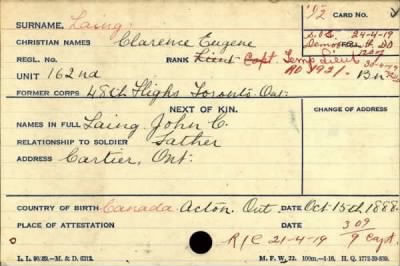 SURNAME. Laing
'92 CARD NO.
CHRISTIAN NAMES Clarence Eugene
S.O.S. 24-4-19
REGL. NO. RANK Lieut Capt. Temp Lieut
Demob
RO 1921.
UNIT 162nd
FORMER CORPS 48th Highs Toronto Ont.
NEXT OF KIN.
CHANGE OF ADDRESS
NAMES IN FULL Laing John C.
RELATIONSHIP TO SOLDIER Father
ADDRESS Cartier, Ont.
COUNTRY OF BIRTH Canada Acton. Ont. DATE Oct 15th 1888.
PLACE OF ATTESTATION DATE
309
R/C 21-4-19 9 Capt.
L. L. 90/89.—M. & D. 6312. M. F. W. 22. 100m.—1-16. H. Q. 1772-39-839.